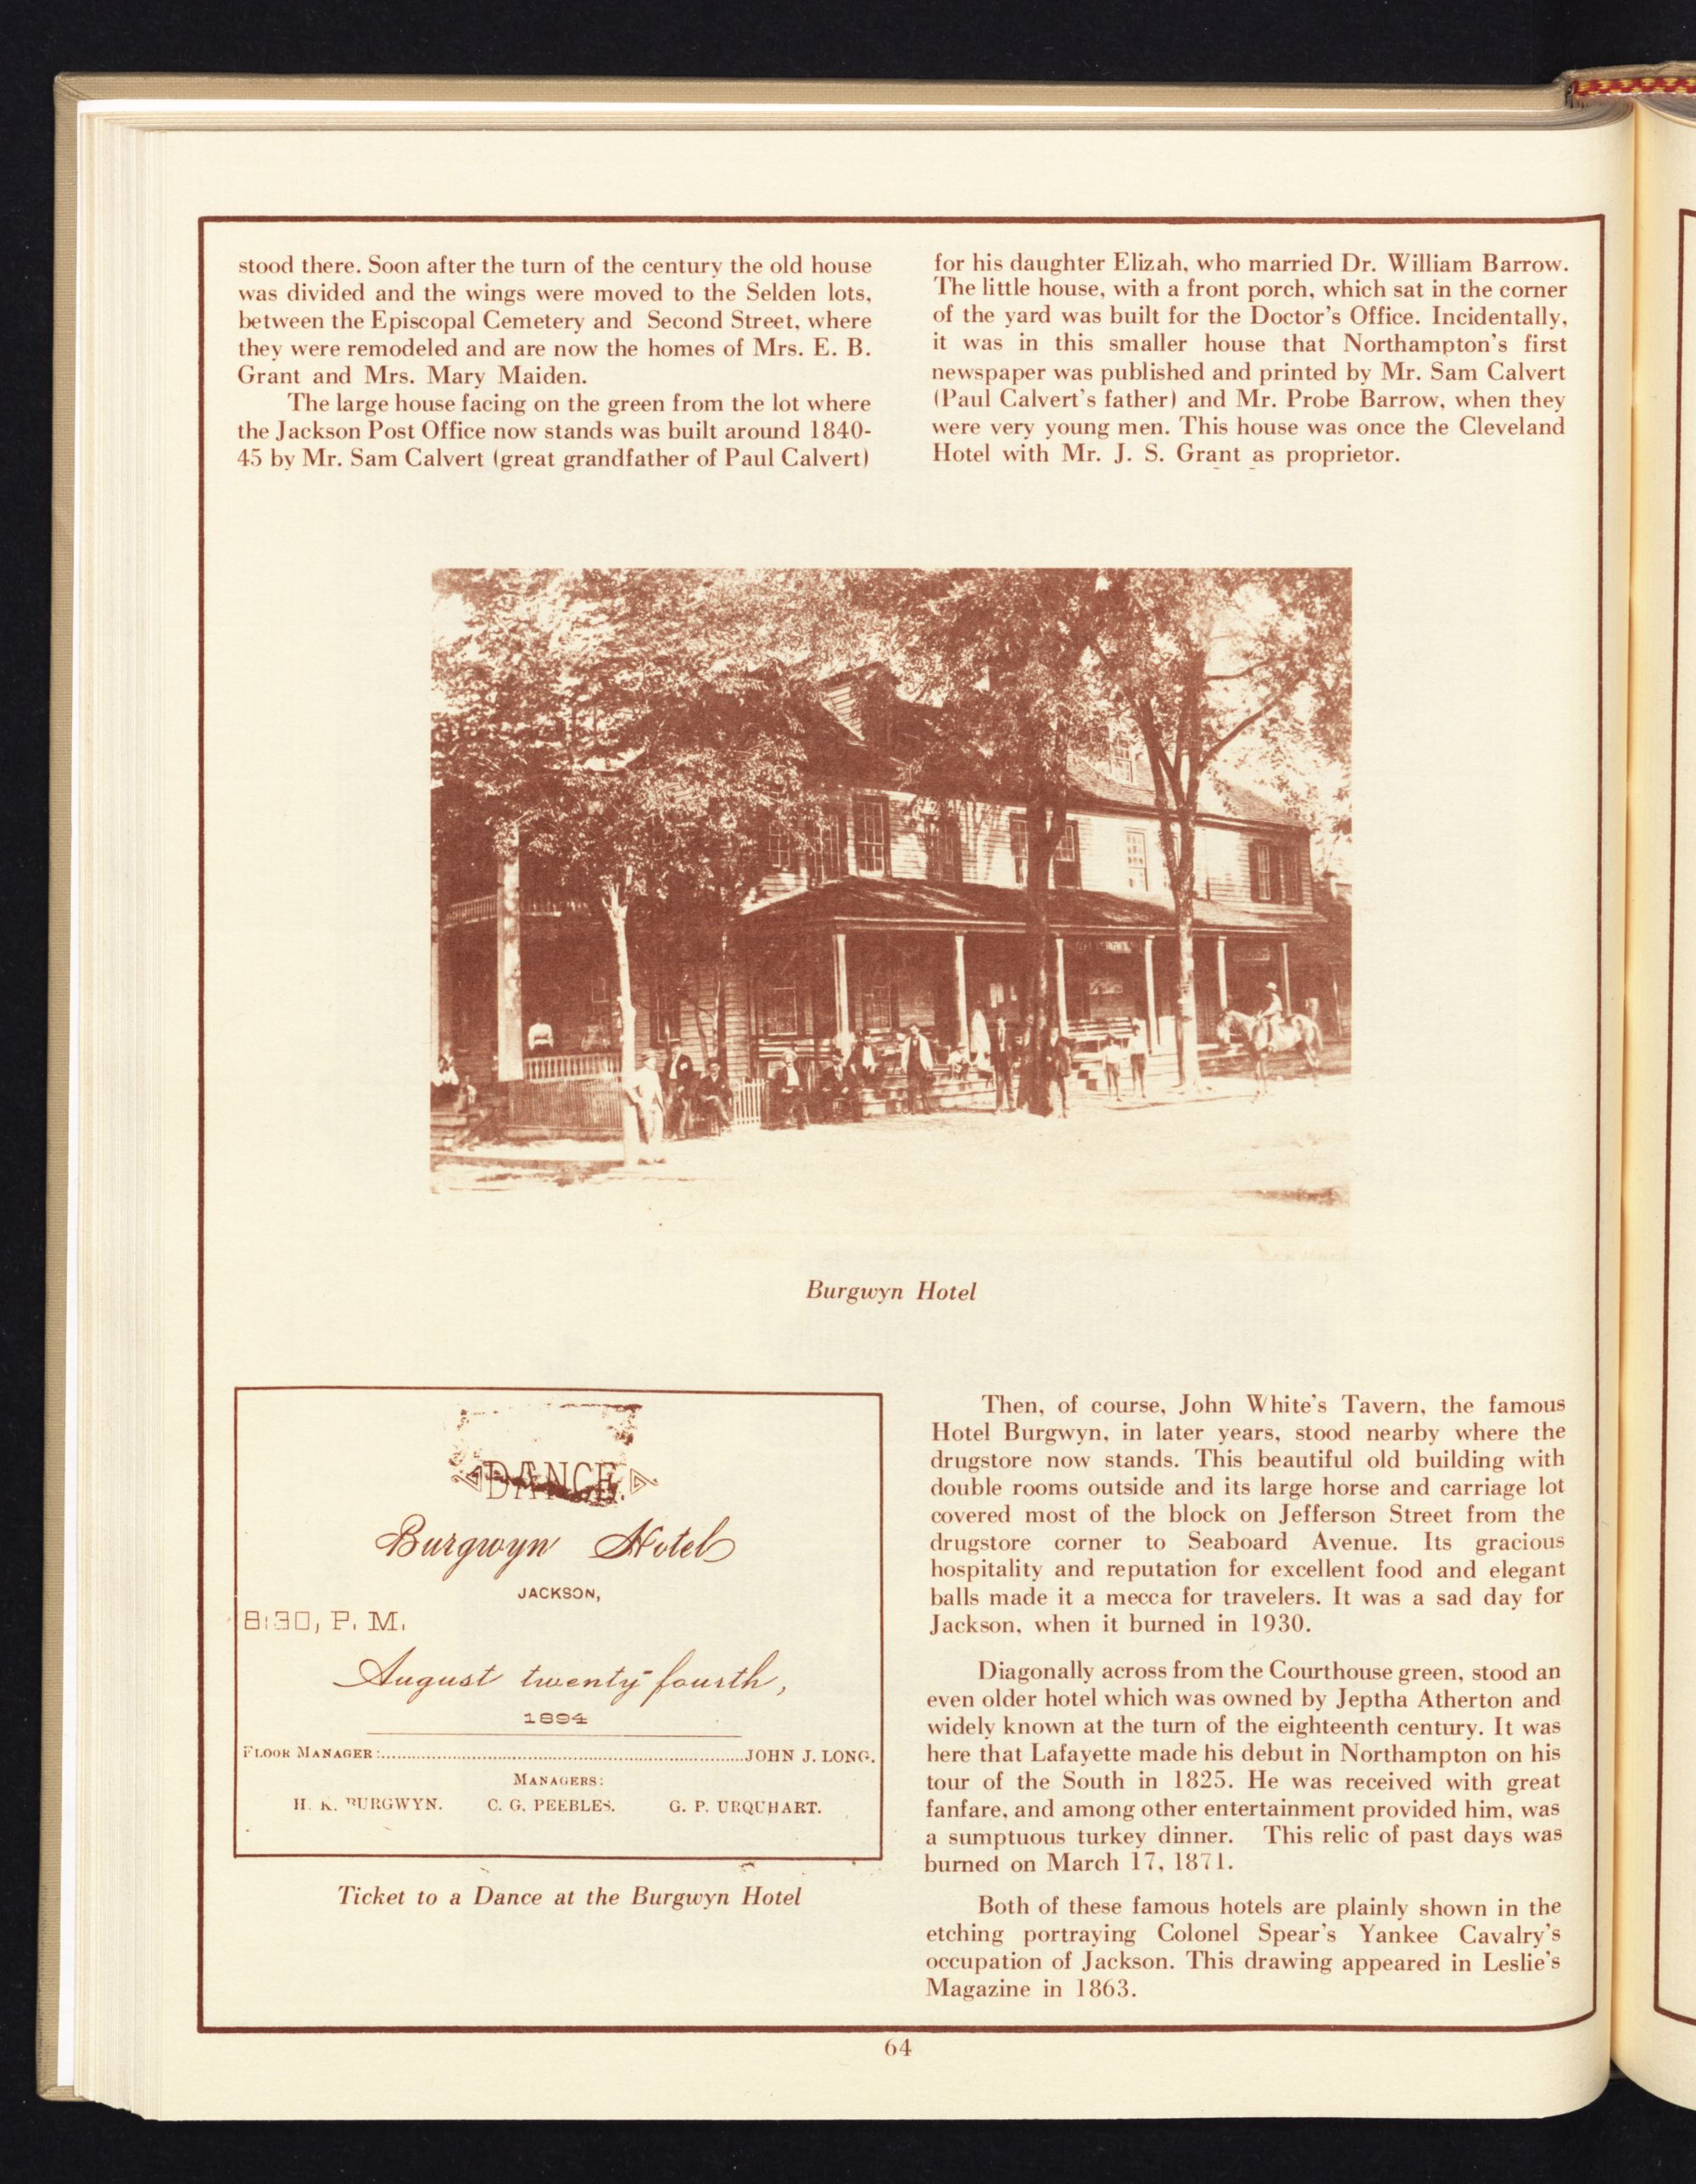 stood there. Soon after the turn of the century the old house
was divided and the wings were moved to the Selden lots,
between the Episcopal Cemetery and Second Street, where
they were remodeled and are now the homes of Mrs. E. B.
Grant and Mrs. Mary Maiden.
The large house facing on the green from the lot where
the Jackson Post Office now stands was built around 1840-
45 by Mr. Sam Calvert (great grandfather of Paul Calvert)
for his daughter Elizah, who married Dr. William Barrow.
The little house, with a front porch, which sat in the corner
of the yard was built for the Doctor's Office. Incidentally,
it was in this smaller house that Northampton's first
newspaper was published and printed by Mr. Sam Calvert
(Paul Calvert's father) and Mr. Probe Barrow, when they
were very young men. This house was once the Cleveland
Hotel with Mr. J. S. Grant as proprietor.
Burgwyn Hotel
DANCE.
Burgwyn Hotel
JACKSON,
8:30, P. M.
August twenty-fourth,
1894
FLOOR MANAGER:..........JOHN J. LONG.
MANAGERS:
H. K. BURGWYN. C. G. PEEBLES. G. P. URQUHART.
Ticket to a Dance at the Burgwyn Hotel
Then, of course, John White's Tavern, the famous
Hotel Burgwyn, in later years, stood nearby where the
drugstore now stands. This beautiful old building with
double rooms outside and its large horse and carriage lot
covered most of the block on Jefferson Street from the
drugstore corner to Seaboard Avenue. Its gracious
hospitality and reputation for excellent food and elegant
balls made it a mecca for travelers. It was a sad day for
Jackson, when it burned in 1930.
Diagonally across from the Courthouse green, stood an
even older hotel which was owned by Jeptha Atherton and
widely known at the turn of the eighteenth century. It was
here that Lafayette made his debut in Northampton on his
tour of the South in 1825. He was received with great
fanfare, and among other entertainment provided him, was
a sumptuous turkey dinner. This relic of past days was
burned on March 17, 1871.
Both of these famous hotels are plainly shown in the
etching portraying Colonel Spear's Yankee Cavalry's
occupation of Jackson. This drawing appeared in Leslie's
Magazine in 1863.
64